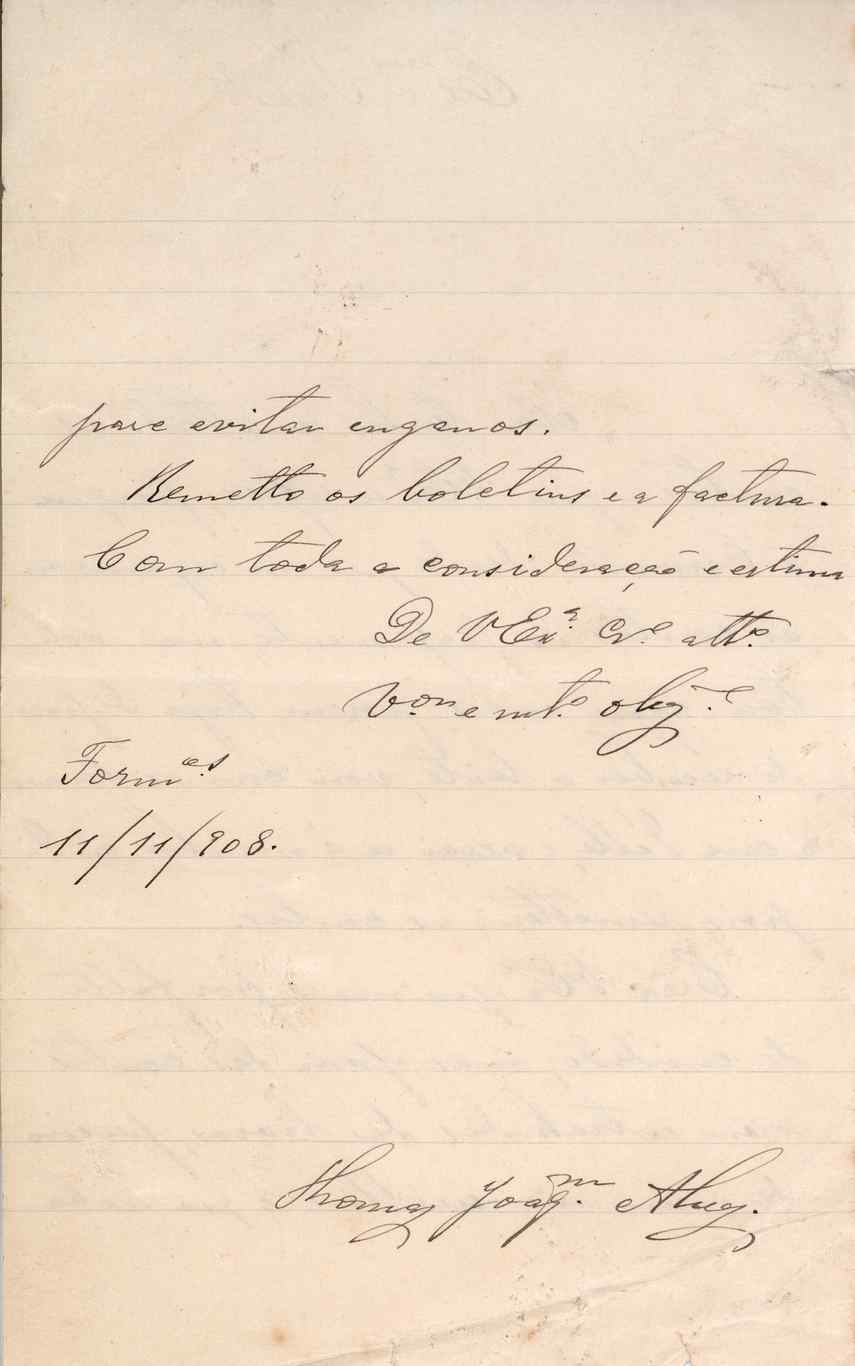 para evitar enganos.
Remetto os boletins e a factura.
Com toda a consideração e estima
De V Exª Cr.º att.º
V.or e mt.º obg.º
Form.es
11/11/908.
Thomaz Joaq.m Alug.